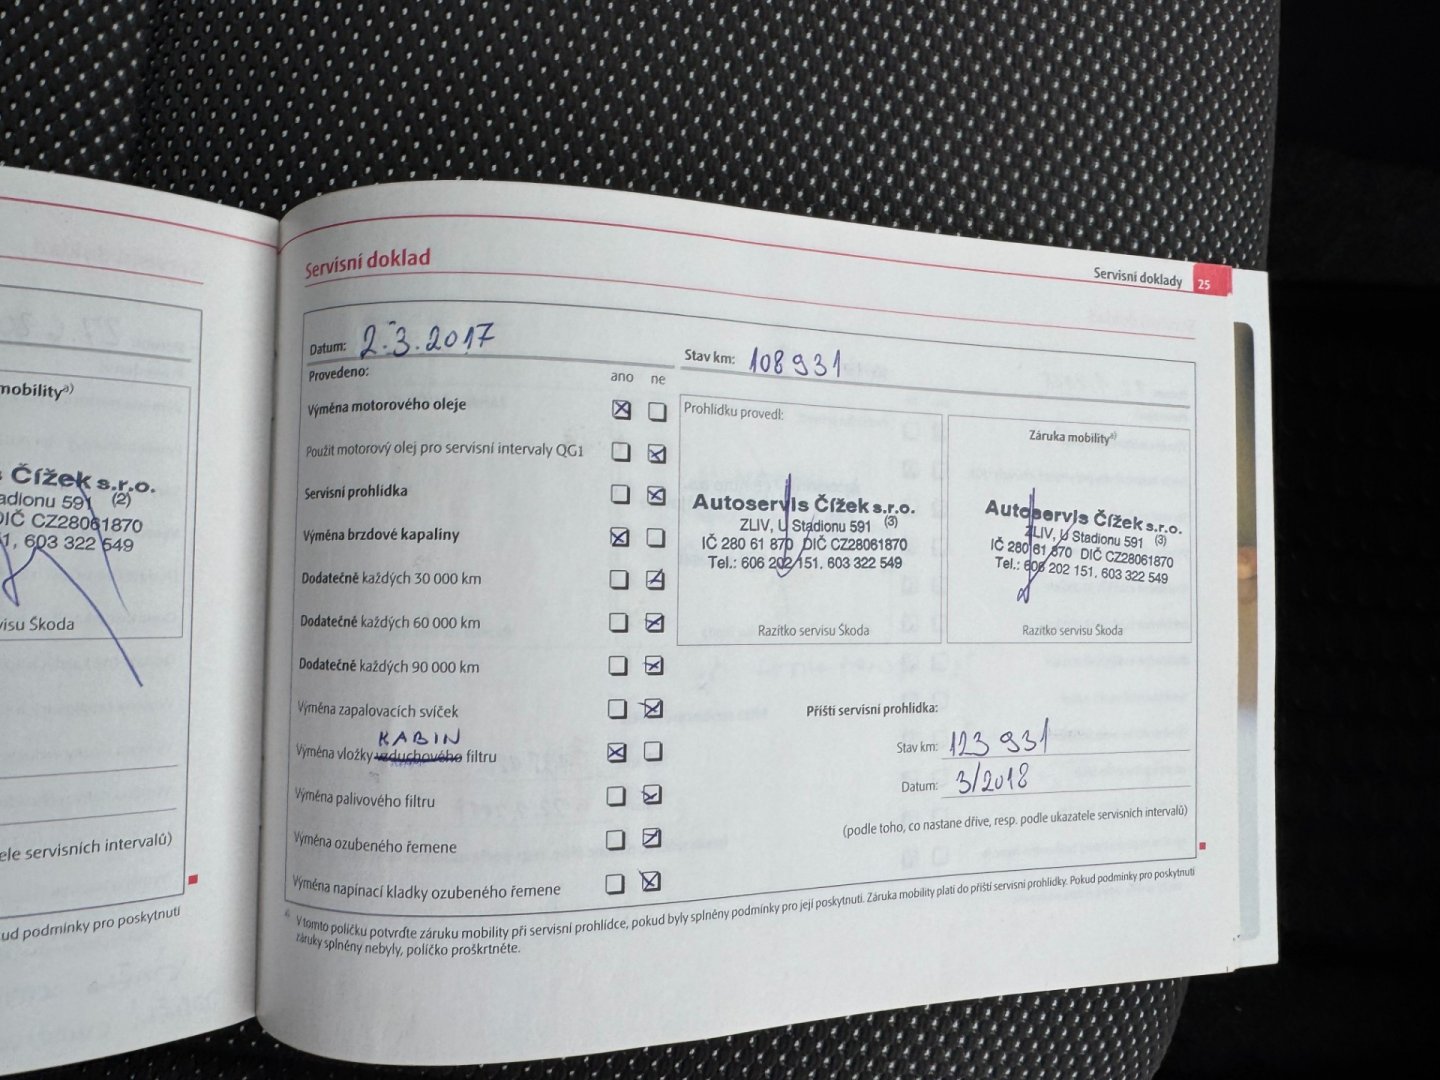 mobility a)
Čížek s.r.o.
adionu 591 (2)
DIČ CZ28061870
1, 603 322 549
visu Škoda
ele servisních intervalů)
ud podmínky pro poskytnutí
Servisní doklady 25
Servisní doklad
Datum: 2.3.2017
Stav km: 108 931
Provedeno: ano ne
Výměna motorového oleje
Použit motorový olej pro servisní intervaly QG1
Servisní prohlídka
Výměna brzdové kapaliny
Dodatečně každých 30 000 km
Dodatečně každých 60 000 km
Dodatečně každých 90 000 km
Výměna zapalovacích svíček
KABIN
Výměna vložky vzduchového filtru
Výměna palivového filtru
Výměna ozubeného řemene
Výměna napínací kladky ozubeného řemene
Prohlídku provedl:
Autoservis Čížek s.r.o.
ZLIV, U Stadionu 591 (3)
IČ 280 61 870 DIČ CZ28061870
Tel.: 606 202 151, 603 322 549
Razítko servisu Škoda
Záruka mobility a)
Autoservis Čížek s.r.o.
ZLIV, U Stadionu 591 (3)
IČ 280 61 870 DIČ CZ28061870
Tel.: 606 202 151, 603 322 549
Razítko servisu Škoda
Příští servisní prohlídka:
Stav km: 123 931
Datum: 3/2018
(podle toho, co nastane dříve, resp. podle ukazatele servisních intervalů)
a) V tomto políčku potvrďte záruku mobility při servisní prohlídce, pokud byly splněny podmínky pro její poskytnutí. Záruka mobility platí do příští servisní prohlídky. Pokud podmínky pro poskytnutí
záruky splněny nebyly, políčko proškrtněte.